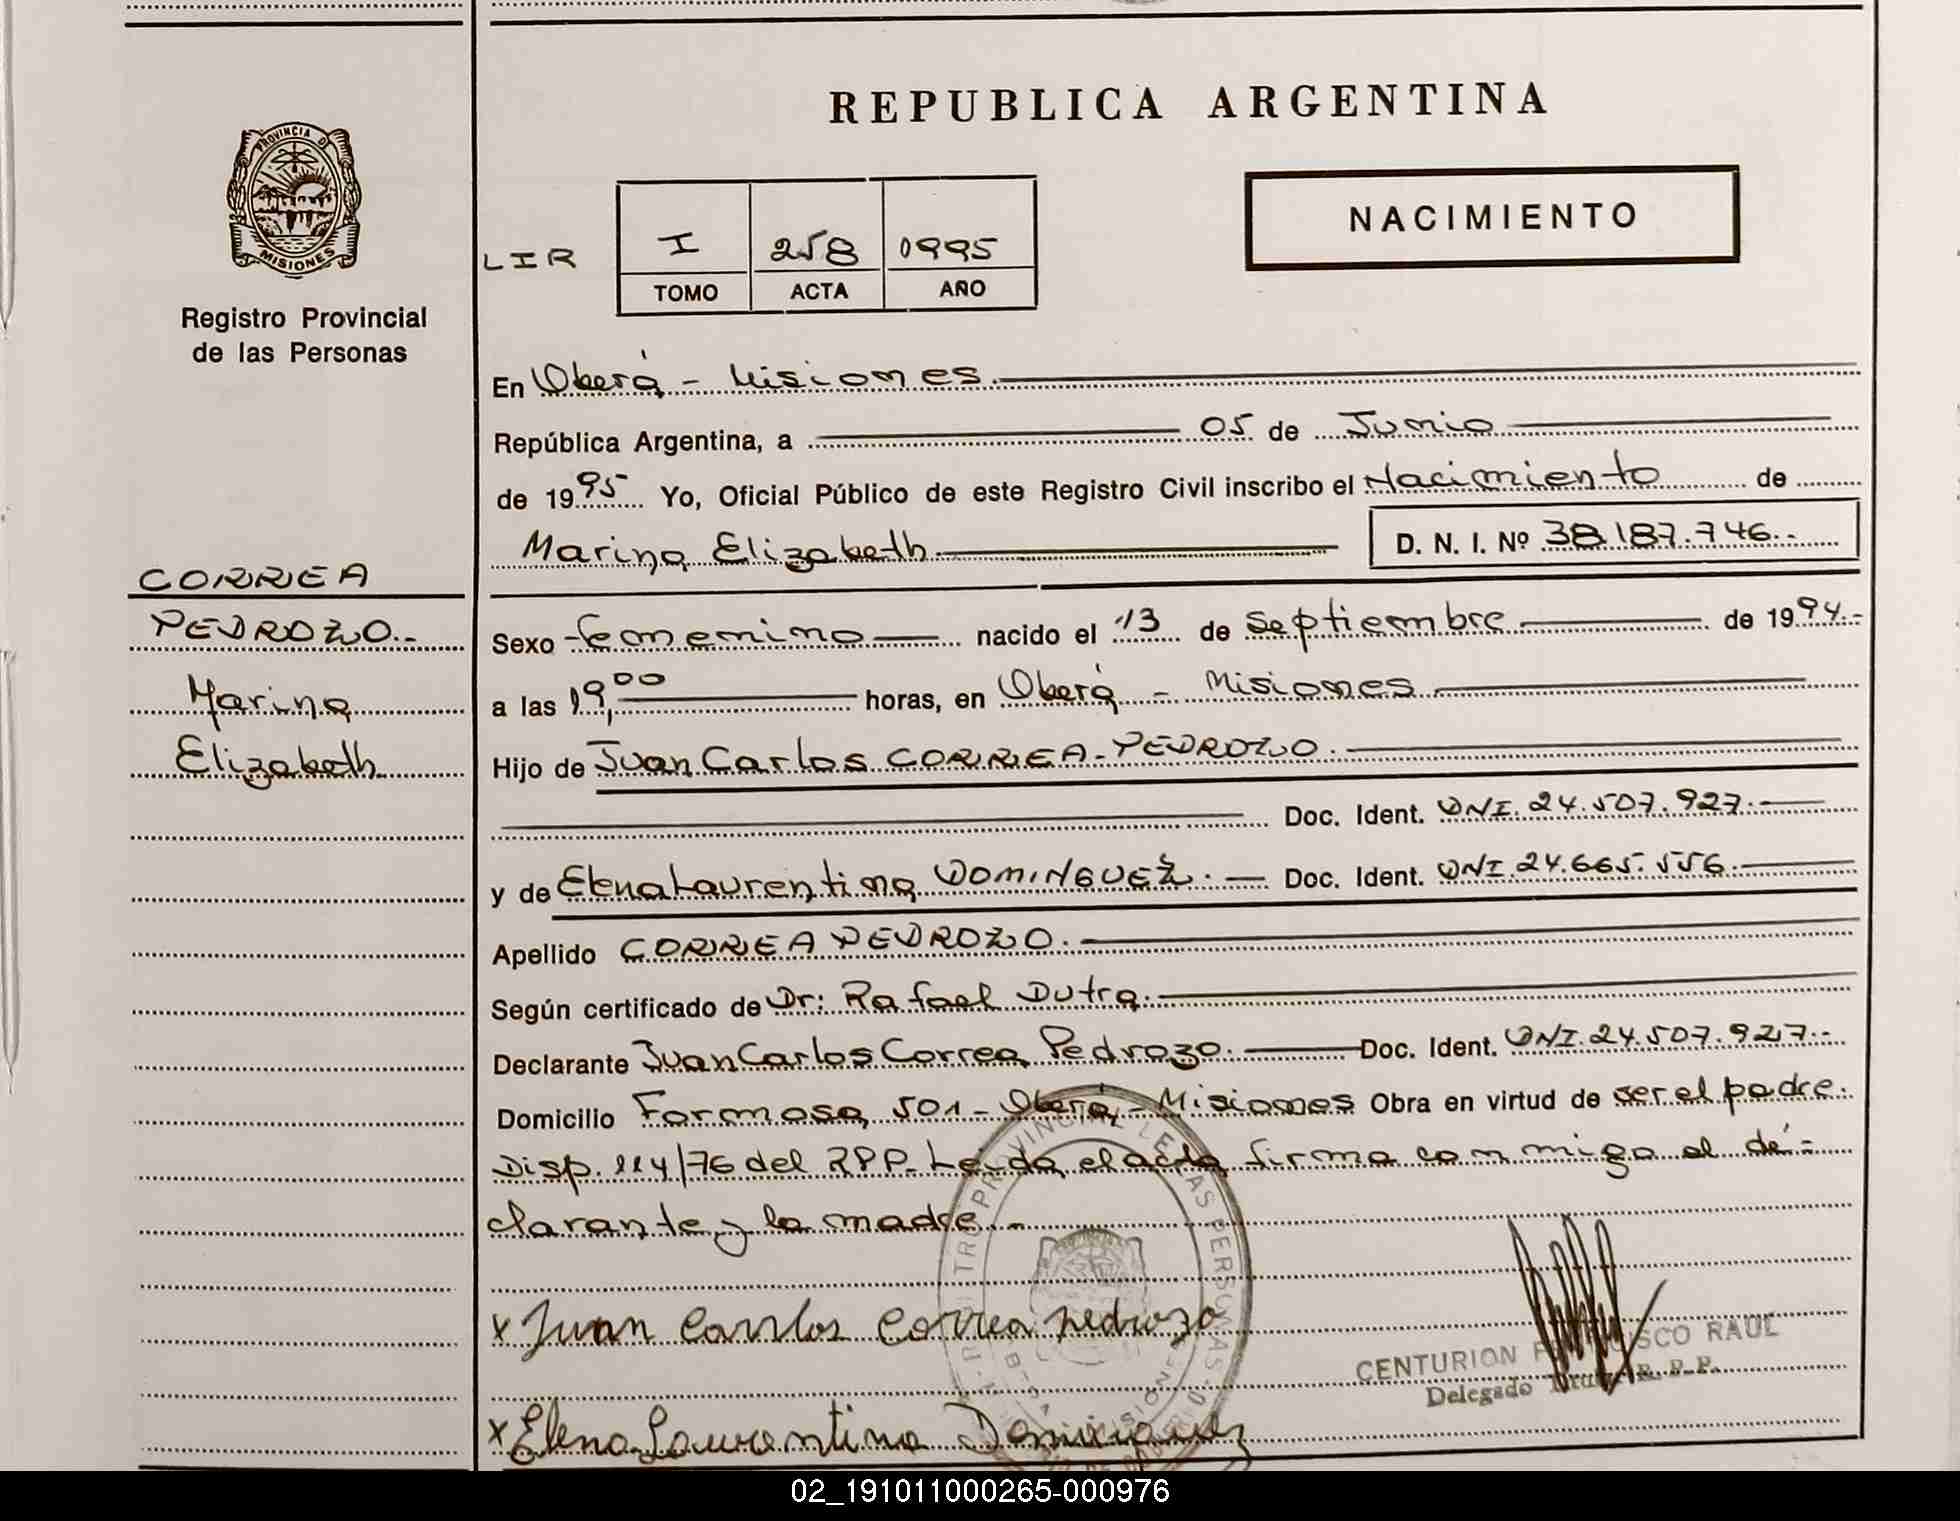 REPUBLICA ARGENTINA
PROVINCIA DE
MISIONES
Registro Provincial
de las Personas
NACIMIENTO
LIR
I 258 0995
TOMO ACTA AÑO
En Oberá - Misiones.
República Argentina, a 05 de Junio
de 1995 Yo, Oficial Público de este Registro Civil inscribo el Nacimiento de
Marina Elizabeth D. N. I. Nº 38.187.746.-
CORREA
PEDROZO.-
Marina
Elizabeth
Sexo femenino nacido el 13 de Septiembre de 1994.-
a las 19,00 horas, en Oberá - Misiones
Hijo de Juan Carlos CORREA-PEDROZO.
Doc. Ident. DNI. 24.507.927.
y de Elena Laurentina DOMINGUEZ. Doc. Ident. DNI 24.665.556.
Apellido CORREA PEDROZO.
Según certificado de Dr: Rafael Dutra.
Declarante Juan Carlos Correa Pedrozo. Doc. Ident. DNI. 24.507.927.-
Domicilio Formosa 501 - Oberá - Misiones Obra en virtud de ser el padre.
Disp. 114/76 del RPP. Leida el acta firma conmigo el de-
clarante y la madre.-
x Juan Carlos Correa pedrozo
CENTURION FRANCISCO RAUL
Delegado Titular R.P.P.
x Elena Laurentina Dominguez
02_191011000265-000976